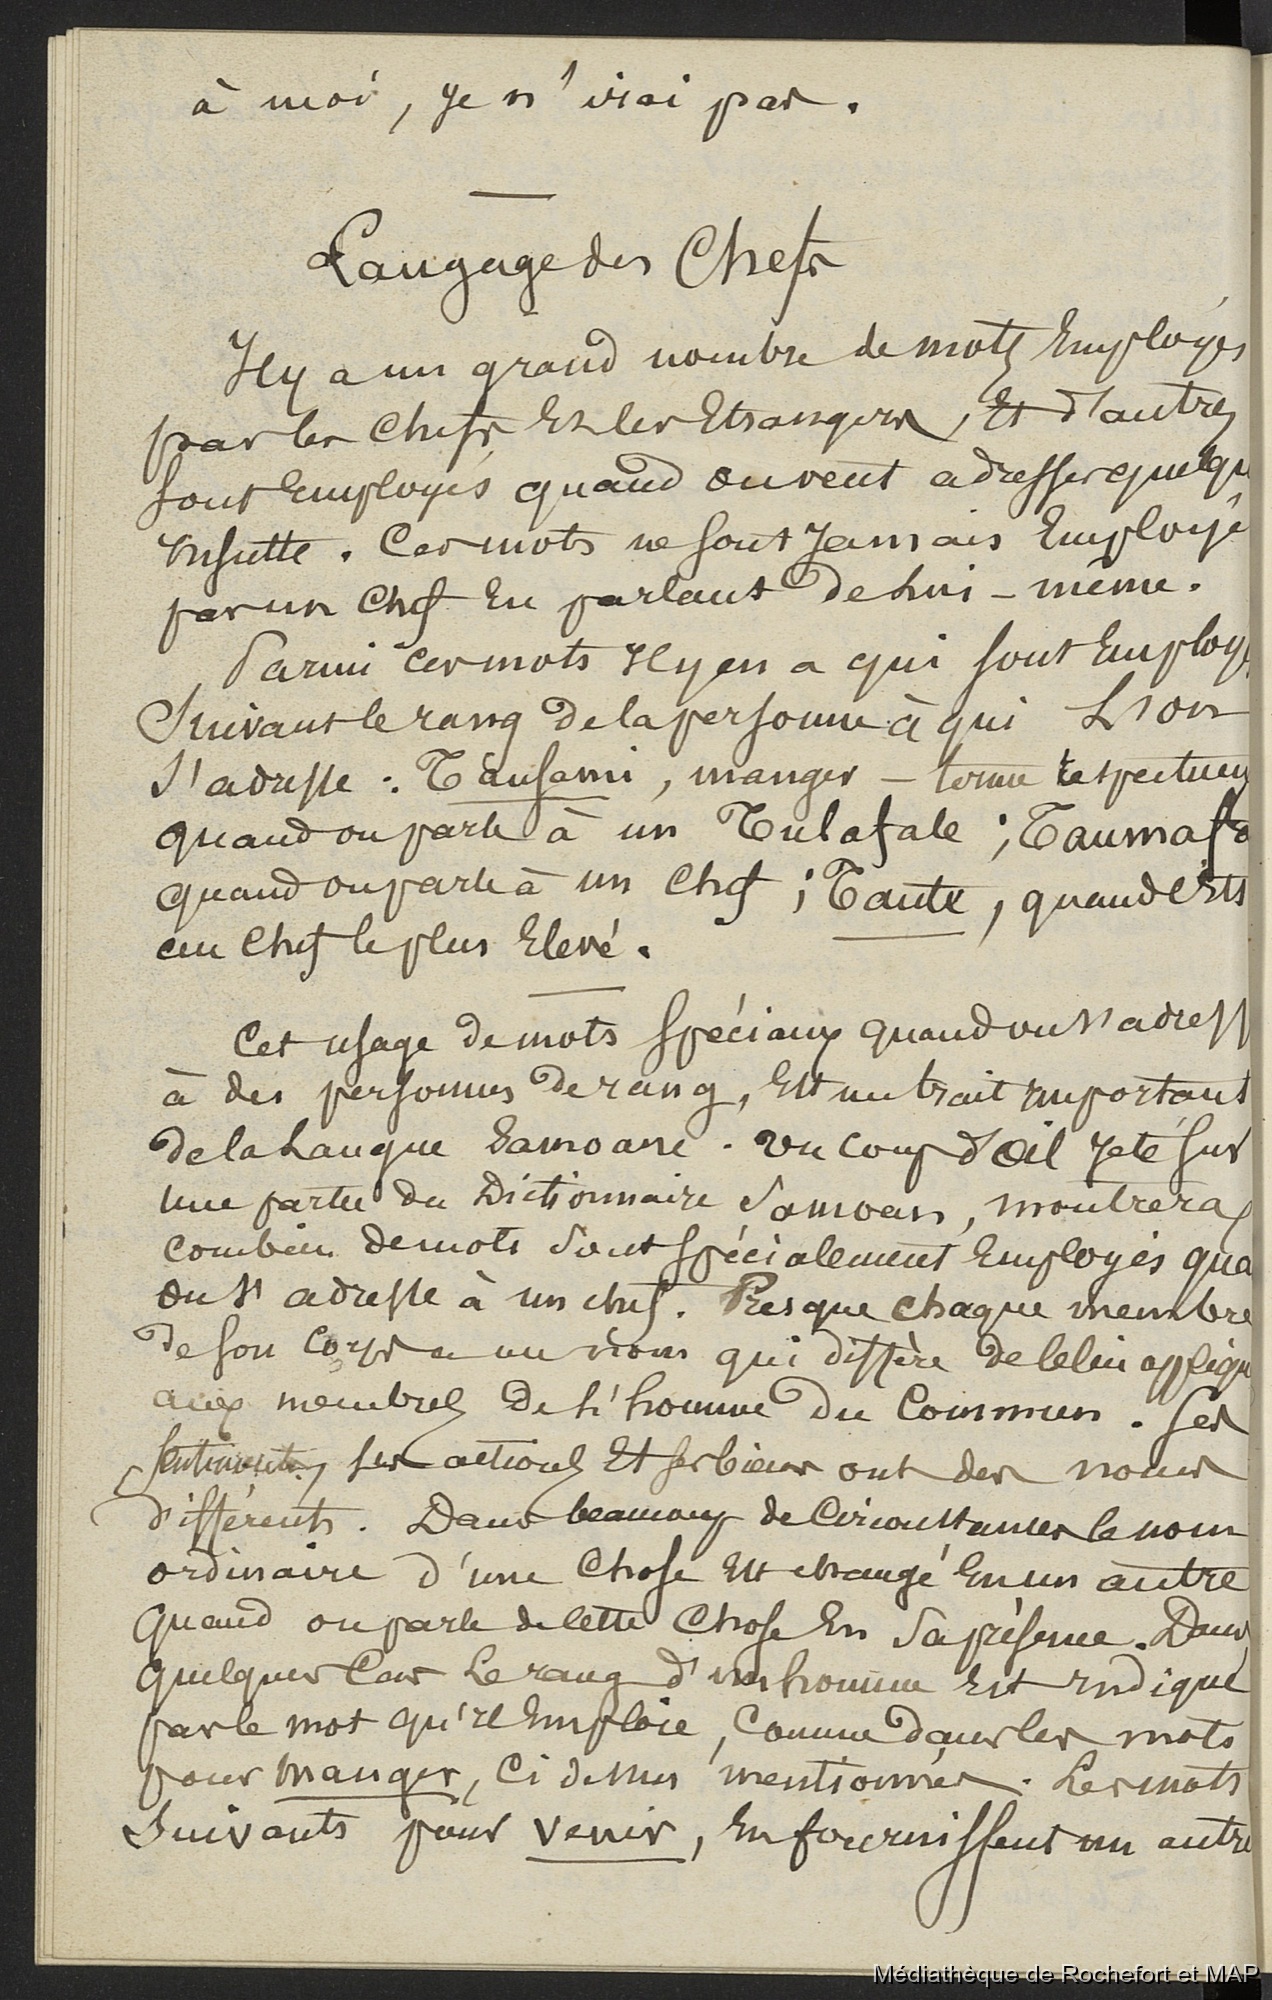 à moi, je n'irai pas.
Langage des Chefs
Il y a un grand nombre de mots Employés
par les Chefs Et les Etrangers, Et d'autres
sont Employés quand on veut adresser quelqu
insulte. Ces mots ne sont Jamais Employé
par un Chef En parlant de lui-même.
Parmi ces mots Il y en a qui sont Employé
Suivant le rang de la personne à qui L'on
S'adresse : Tausami, manger – terme respectueux
quand on parle à un Tulafale ; Taumafa
quand on parle à un Chef ; Taute, quand C'Est
au Chef le plus Elevé.
Cet usage de mots spéciaux quand on s'adress
à des personnes de rang, Est un trait Important
de la Langue Samoane. Un coup d'œil Jeté sur
une partie du Dictionnaire Samoan, montrera
combien de mots sont spécialement Employés qua
on s'adresse à un chef. Presque chaque membre
de son Corps a un nom qui diffère de celui appliqu
aux membres de L'homme du Commun. Ses
sentiments, ses actions Et ses biens ont des noms
différents. Dans beaucoup de Circonstances le nom
ordinaire d'une Chose Est changé En un autre
quand on parle de cette Chose En sa présence. Dans
quelques Cas Le rang d'un homme Est Indiqué
par le mot qu'Il Emploie, Comme dans les mots
pour manger, Ci dessus mentionnés. Les mots
Suivants pour venir, En fournissent un autre
Médiathèque de Rochefort et MAP